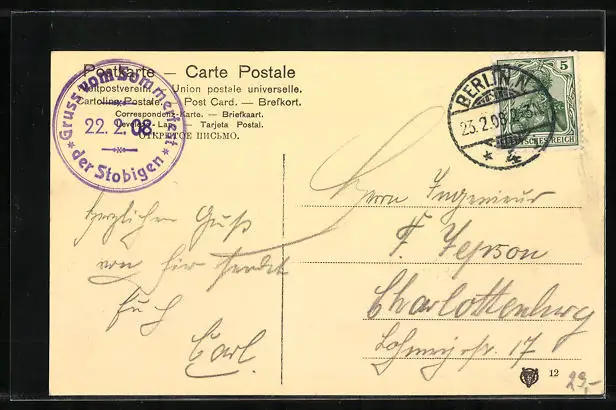 Postkarte — Carte Postale
Weltpostverein. Union postale universelle.
Cartolina Postale. Post Card. — Brefkort.
Correspondenz-Karte. — Briefkaart.
Levelező-Lap. Tarjeta Postal.
ОТКРЫТОЕ ПИСЬМО.
Gruss vom Sommerfest
22.2.08
der Stobigen
5
DEUTSCHES REICH
BERLIN N
23.2.08
4
Herrn Ingenieur
F. Jepson
Charlottenburg
17
Herzlichen Gruß
von hier sendet
Carl.
12
29,-